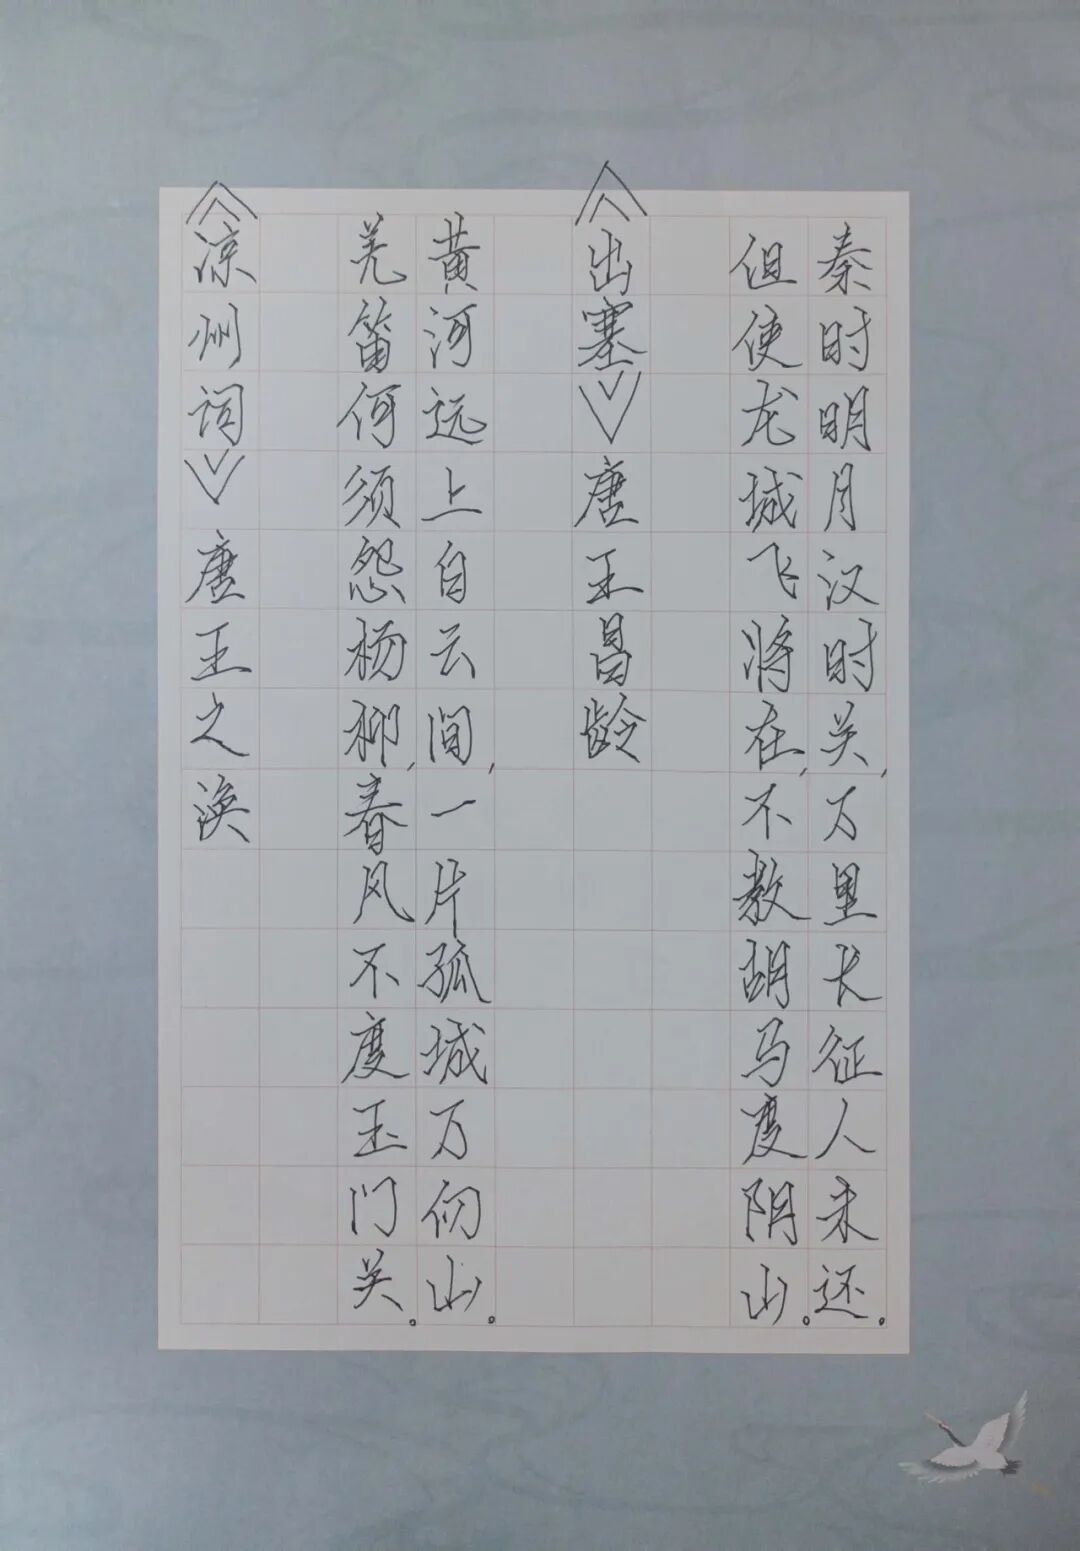 秦时明月汉时关,万里长征人未还。
但使龙城飞将在,不教胡马度阴山。
《出塞》唐王昌龄
黄河远上白云间,一片孤城万仞山。
羌笛何须怨杨柳,春风不度玉门关。
《凉州词》唐王之涣